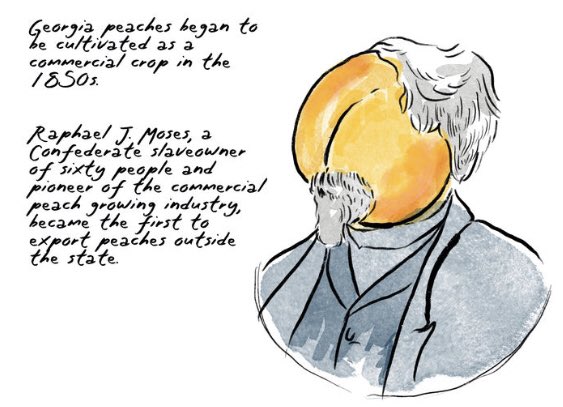 Georgia peaches began to
be cultivated as a
commercial crop in the
1850s.
Raphael J. Moses, a
Confederate slaveowner
of sixty people and
pioneer of the commercial
peach growing industry,
became the first to
export peaches outside
the state.